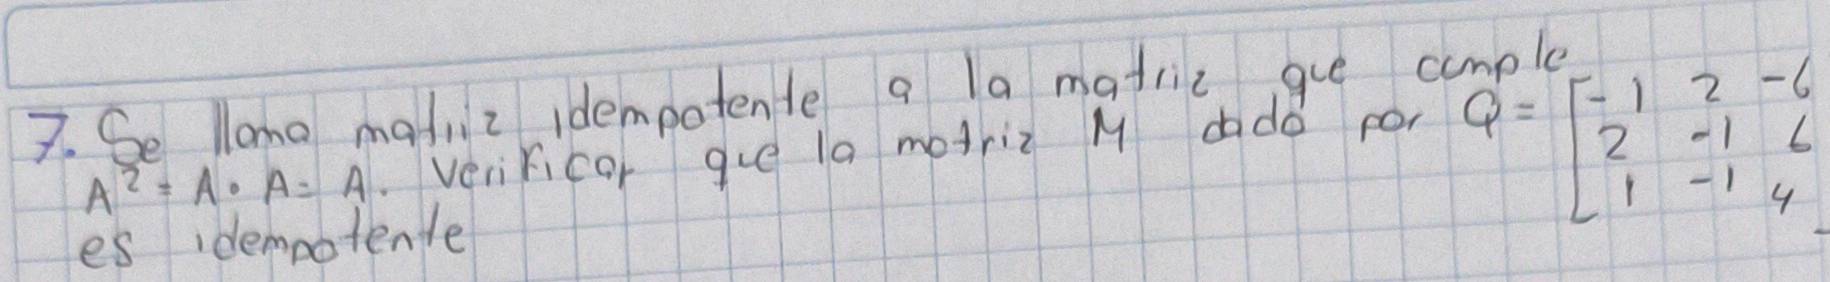 7. Se llama matriz idempotente a la matriz que cumple
A² = A · A = A. Verificar que la matriz M dado por Q = [-1 2 -6
2 -1 6
1 -1 4]
es idempotente